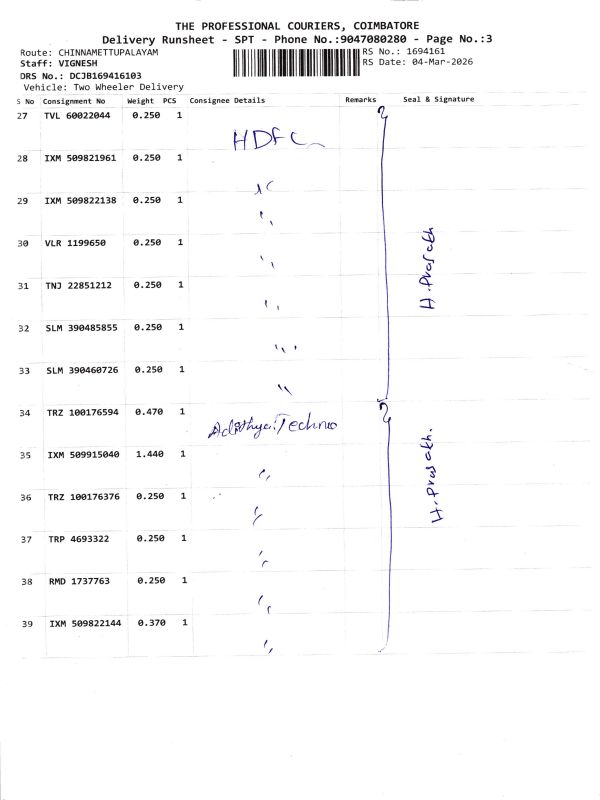 THE PROFESSIONAL COURIERS, COIMBATORE
Delivery Runsheet - SPT - Phone No.:9047080280 - Page No.:3
Route: CHINNAMETTUPALAYAM
RS No.: 1694161
Staff: VIGNESH
RS Date: 04-Mar-2026
DRS No.: DCJB169416103
Vehicle: Two Wheeler Delivery
S No Consignment No Weight PCS Consignee Details Remarks Seal & Signature
27 TVL 60022044 0.250 1
HDFC
28 IXM 509821961 0.250 1
29 IXM 509822138 0.250 1
30 VLR 1199650 0.250 1
31 TNJ 22851212 0.250 1
H. Prasath
32 SLM 390485855 0.250 1
33 SLM 390460726 0.250 1
34 TRZ 100176594 0.470 1
Adithya Techno
35 IXM 509915040 1.440 1
H. Prasath.
36 TRZ 100176376 0.250 1
37 TRP 4693322 0.250 1
38 RMD 1737763 0.250 1
39 IXM 509822144 0.370 1